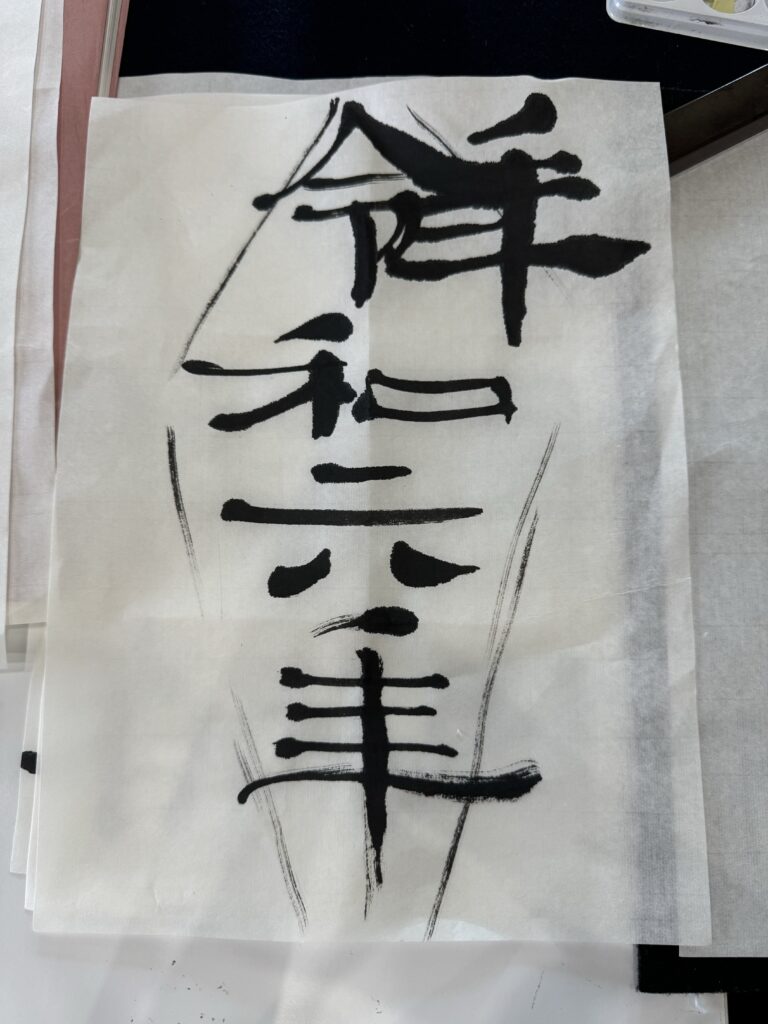 令和六年